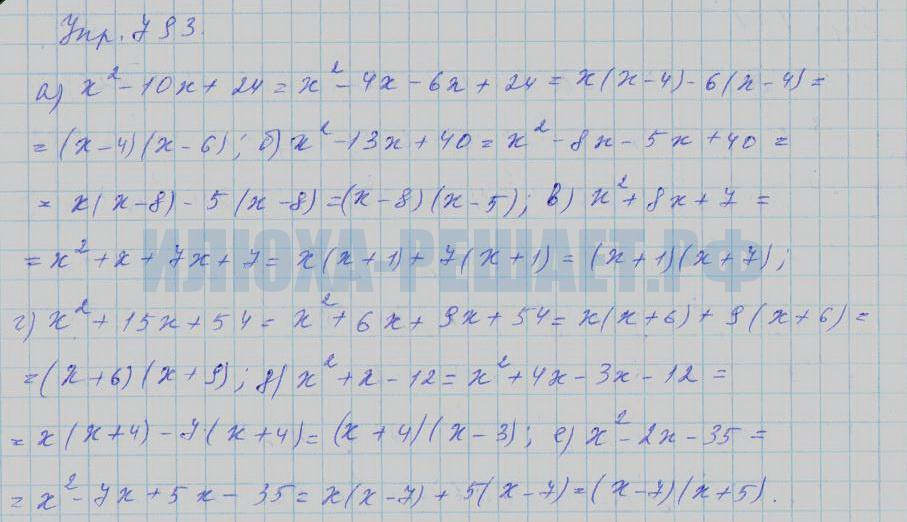 Упр. 793.
а) x² - 10x + 24 = x² - 4x - 6x + 24 = x(x-4) - 6(x-4) =
= (x-4)(x-6); б) x² - 13x + 40 = x² - 8x - 5x + 40 =
= x(x-8) - 5(x-8) = (x-8)(x-5); в) x² + 8x + 7 =
= x² + x + 7x + 7 = x(x+1) + 7(x+1) = (x+1)(x+7);
ИЛЮХА-РЕШАЕТ.РФ
г) x² + 15x + 54 = x² + 6x + 9x + 54 = x(x+6) + 9(x+6) =
= (x+6)(x+9); д) x² + x - 12 = x² + 4x - 3x - 12 =
= x(x+4) - 7(x+4) = (x+4)(x-3); е) x² - 2x - 35 =
= x² - 7x + 5x - 35 = x(x-7) + 5(x-7) = (x-7)(x+5).